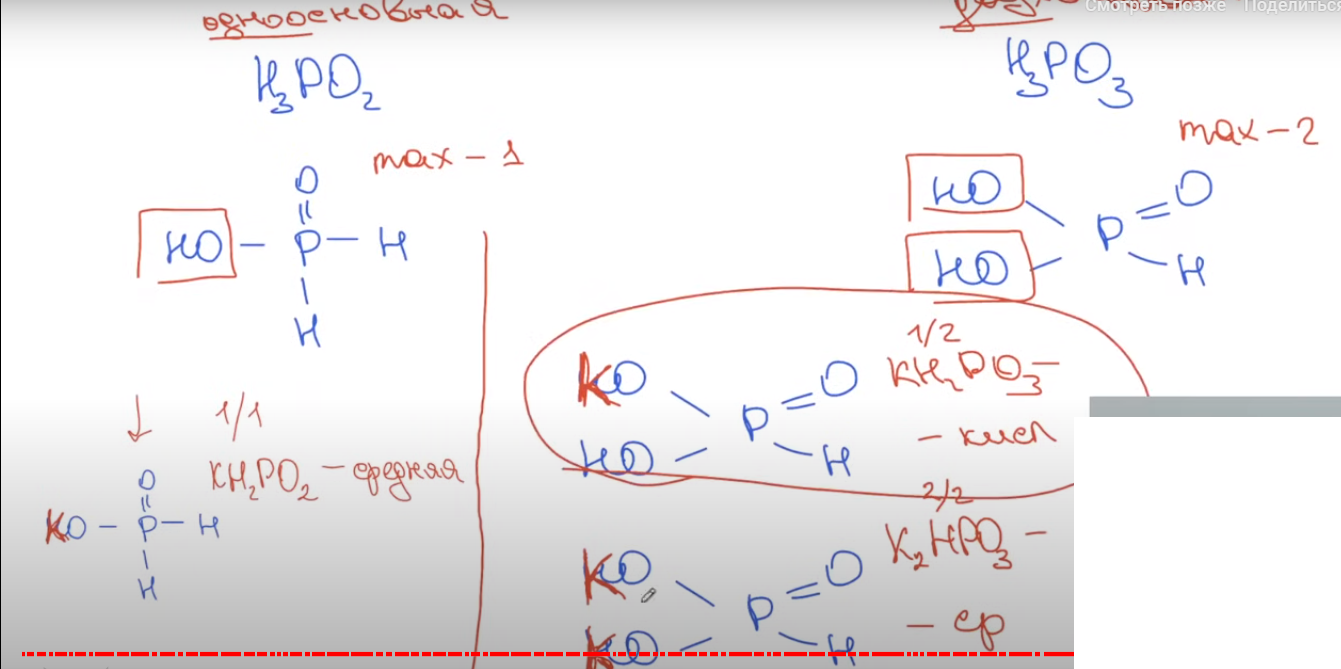 одноосновная
Смотреть позже Поделиться
H₃PO₂
H₃PO₃
max - 1
max - 2
O
HO - P - H
H
HO
HO
P = O
H
1/1
KH₂PO₂ - средняя
O
KO - P - H
H
1/2
KH₂PO₃ -
- кисл
KO
HO
P = O
H
2/2
K₂HPO₃ -
- ср
KO
KO
P = O
H